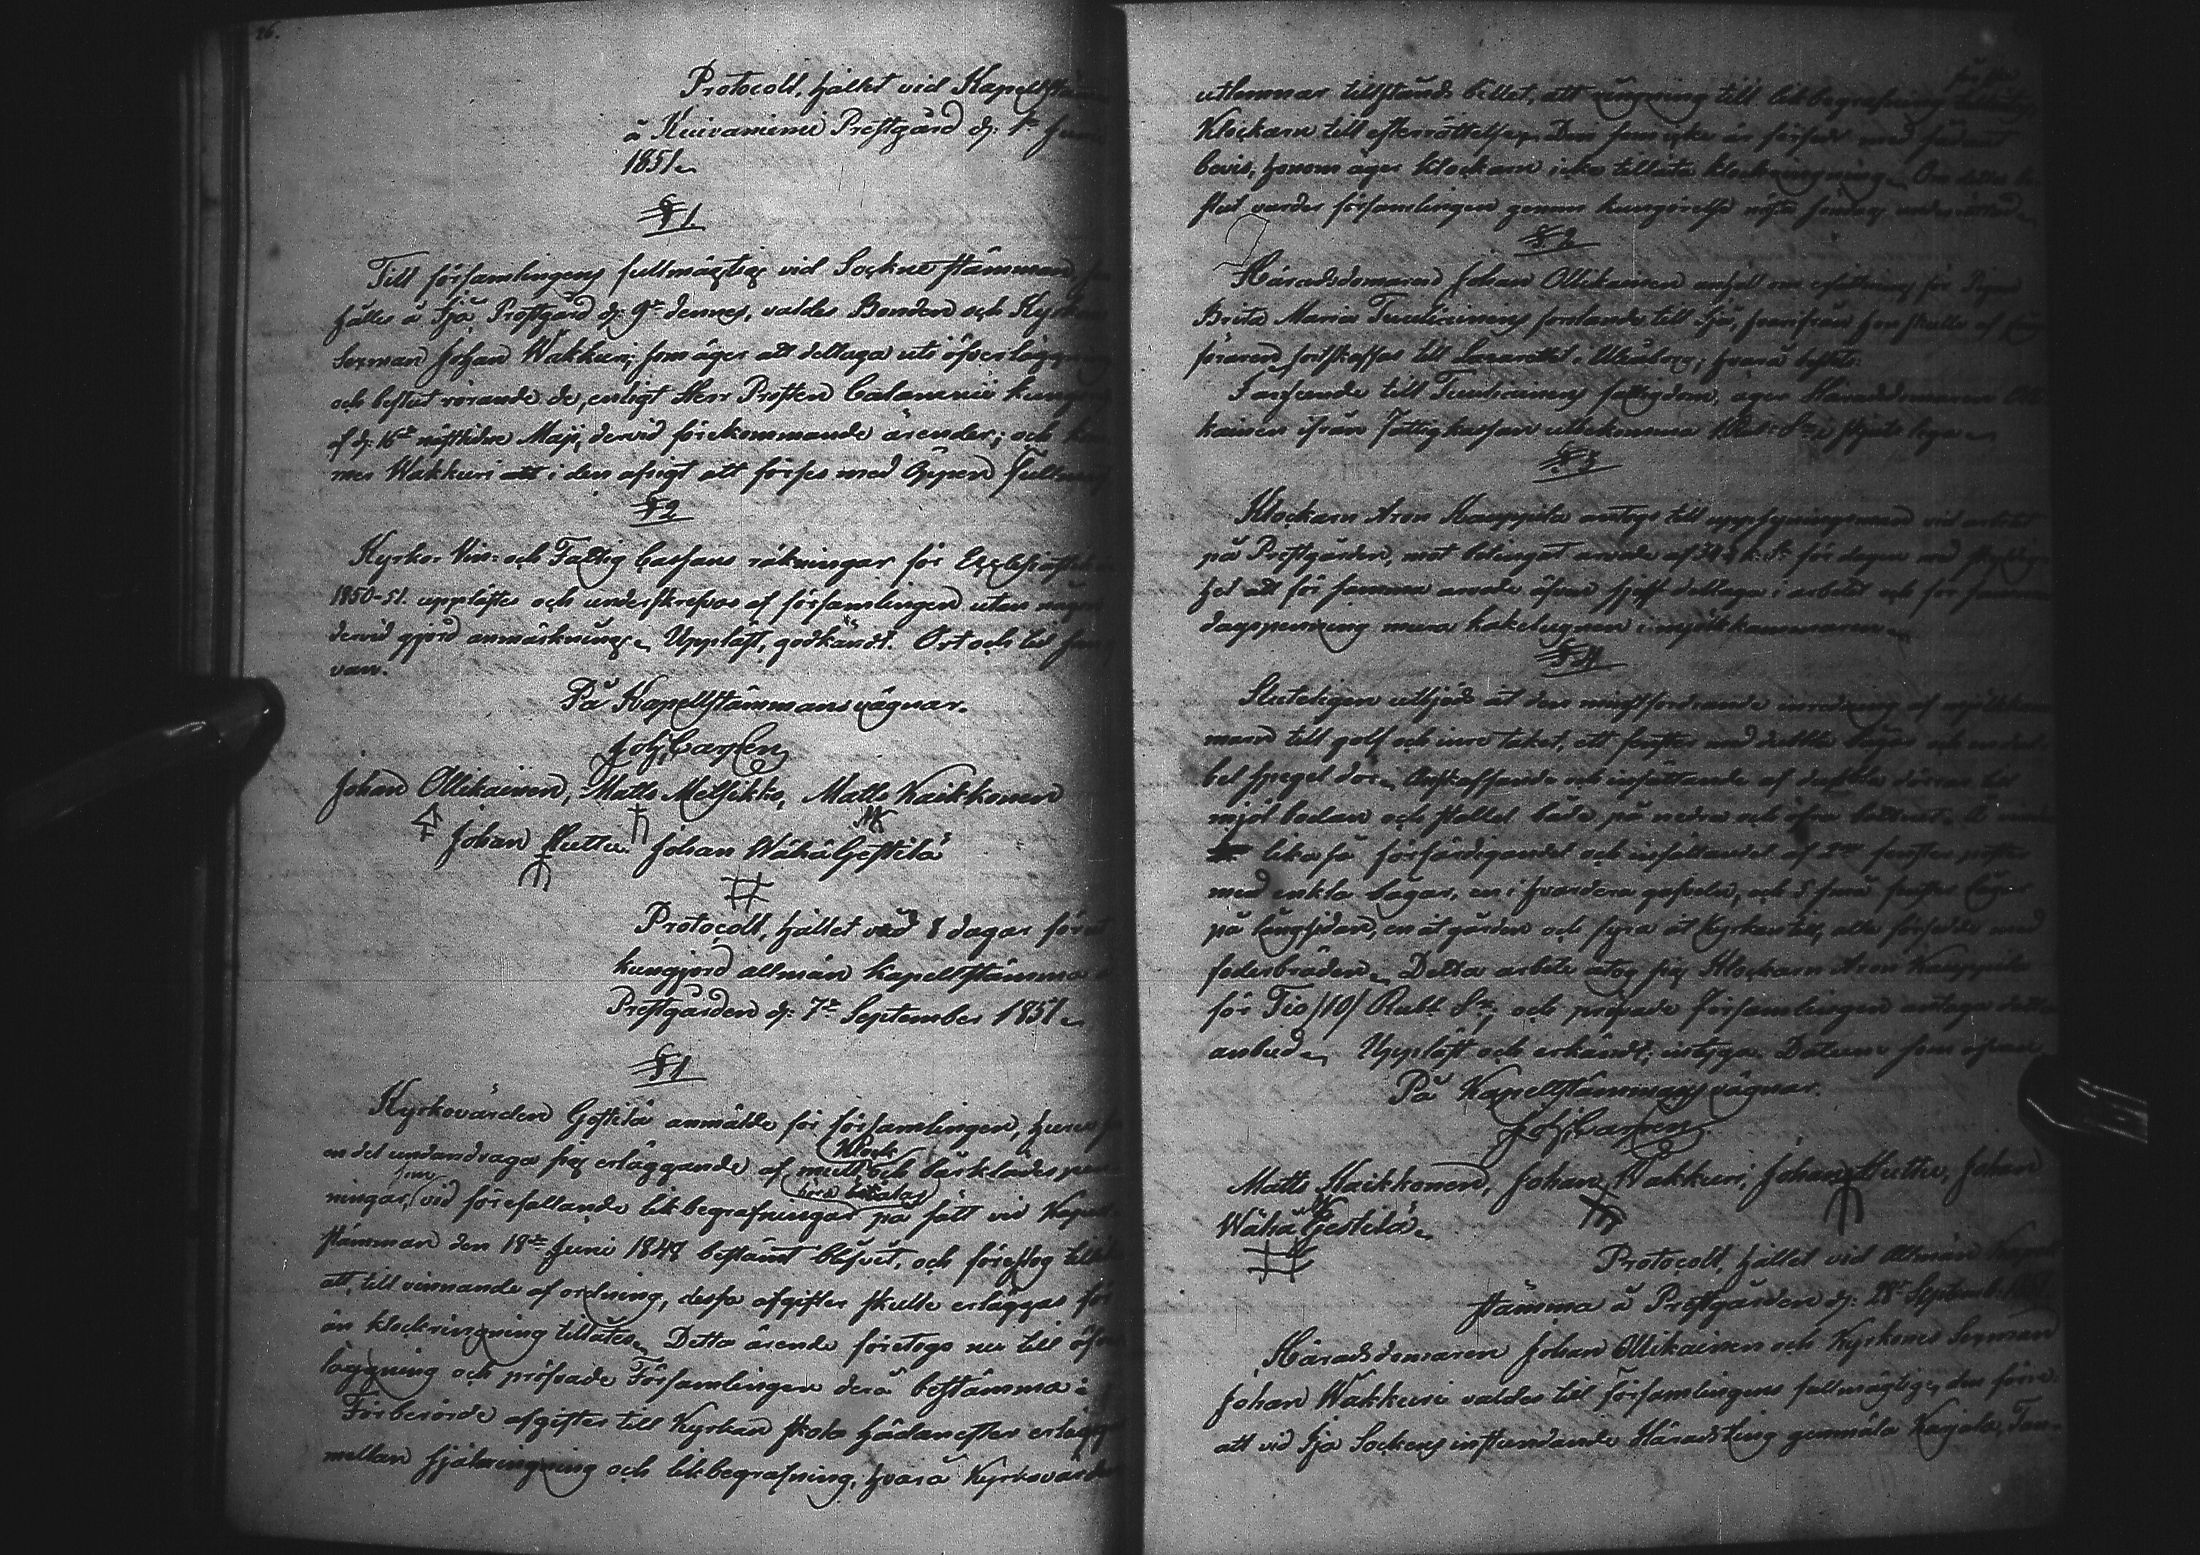 26.
Protocoll, hållet vid Kapellstämma
å Kuivaniemi Prestgård d: 1 Juni
1851.
§ 1
Till församlingens fullmägtig vid Sockne stämman,
hålles å Ijo Prestgård d: 9de dennes, valdes Bonden och Kyrkones
Sexman Johan Wakkuri, som äger att deltaga uti öfverläggning
och beslut rörande de, enligt Herr Prosten Calamnii kungörelse
af d: 16de nästledne Maji, dervid förekommande ärender; och
mer Wakkuri att i den afsigt att förses med öppen Fullmagt
§ 2
Kyrko- Vin- och Fattig Cassans räkningar för Ecclesiastik
1850-51. upplästes och underskrefvos af församlingen utan någon
dervid gjord anmärkning. Uppläst, godkändt. Ort och tid som
van.
På Kapellstämmans vägnar.
Joh: Cajlen
Johan Ollikainen, Matts Metsikkö, Matts Kaikkonen
MK
Johan Huttu Johan Wähä Gestilä
Protocoll, hållet vid 8 dagar förut
kungjord allmän Kapellstämma å
Prestgården d: 7de September 1851.
§ 1
Kyrkovärden Gestilä anmälde för församlingen, huru
en del undandraga sig erläggande af mull och Klock bårklädes pen-
ningar, som vid förefallande likbegrafningar böra betalas på sätt vid Kapell-
stämman den 18de Juni 1848 bestämt blifvit, och föreslog
att, till vinnande af ordning, dessa afgifter skulle erläggas för
än klockringning tillåtes. Detta ärende företogs nu till öfver
läggning och pröfvade Församlingen derå bestämma:
Förberörde afgifter till Kyrkan skola hädanefter erläggas
mellan själaringning och likbegrafning, hvarå Kyrkovärden
utlemnar tillstånds billet, att ringning till likbegrafning
Klockaren till efterrättelse. Den som icke är försedd med sådant
bevis, honom äger klockaren icke tillåta klockringning. Om detta be-
slut vardes församlingen genom kungörelse nästa söndag underrättad
§ 2
Häradsdomaren Johan Ollikainen anhöll om ersättning för Pigan
Brita Maria Tuuliainens forslande till Ijo, hvarifrån hon skulle af Läns
föraren fortskaffas till Lazarettet i Uleåborg; hvarå beslöts:
I anseende till Tuuliainens fattigdom, äger Häradsdomaren Olli-
kainen ifrån Fattigkassan utbekomma Sr i skjuts lega.
§ 3
Klockaren Aron Kauppila antogs till uppsyningsman vid arbetet
på Prestgården, mot betingat arvode af k. Sr för dagen med skyldig-
het att för samma arvode äfven sjelf deltaga i arbetet och för samma
dagspenning mura kakelugnen i mjölkkammaren.
§ 4
Sluteligen utbjöds åt den minstfordrande inredning af mjölkkam
maren till golf och inre taket, ett fenster med dubbla bågar och en dub-
bel spegel dörr. Anskaffande och insättande af dubbla dörrar till
mjöl bodan och stallet både på nedra och öfra bottnet.
lika så förfärdigandet och insättandet af 2ne fenster
med enkla bågar, en i hvardera gafveln, och 5 små fenster bågar
på långsidan, en åt gården och fyra åt Kyrkan till, alla försedda med
foderbräden. Detta arbete åtog sig Klockaren Aron Kauppila
för Tio /10/ Rub: Sr, och pröfvade Församlingen antaga detta
anbud. Uppläst och erkändt, intyga. Datum som ofvan
På Kapellstämmans vägnar.
Joh: Cajlen
Matts Kaikkonen, Johan Wakkuri, Johan Huttu, Johan
MK
Wähä Gestilä.
Protocoll, hållet vid allmän Kapell
stämma å Prestgården d: 28de Septemb: 1851.
Häradsdomaren Johan Ollikainen och Kyrkones Sexman
Johan Wakkuri valdes till församlingens fullmägtige, den förre
att vid Ijo Sockens instundande Häradsting genmäla Karjala,